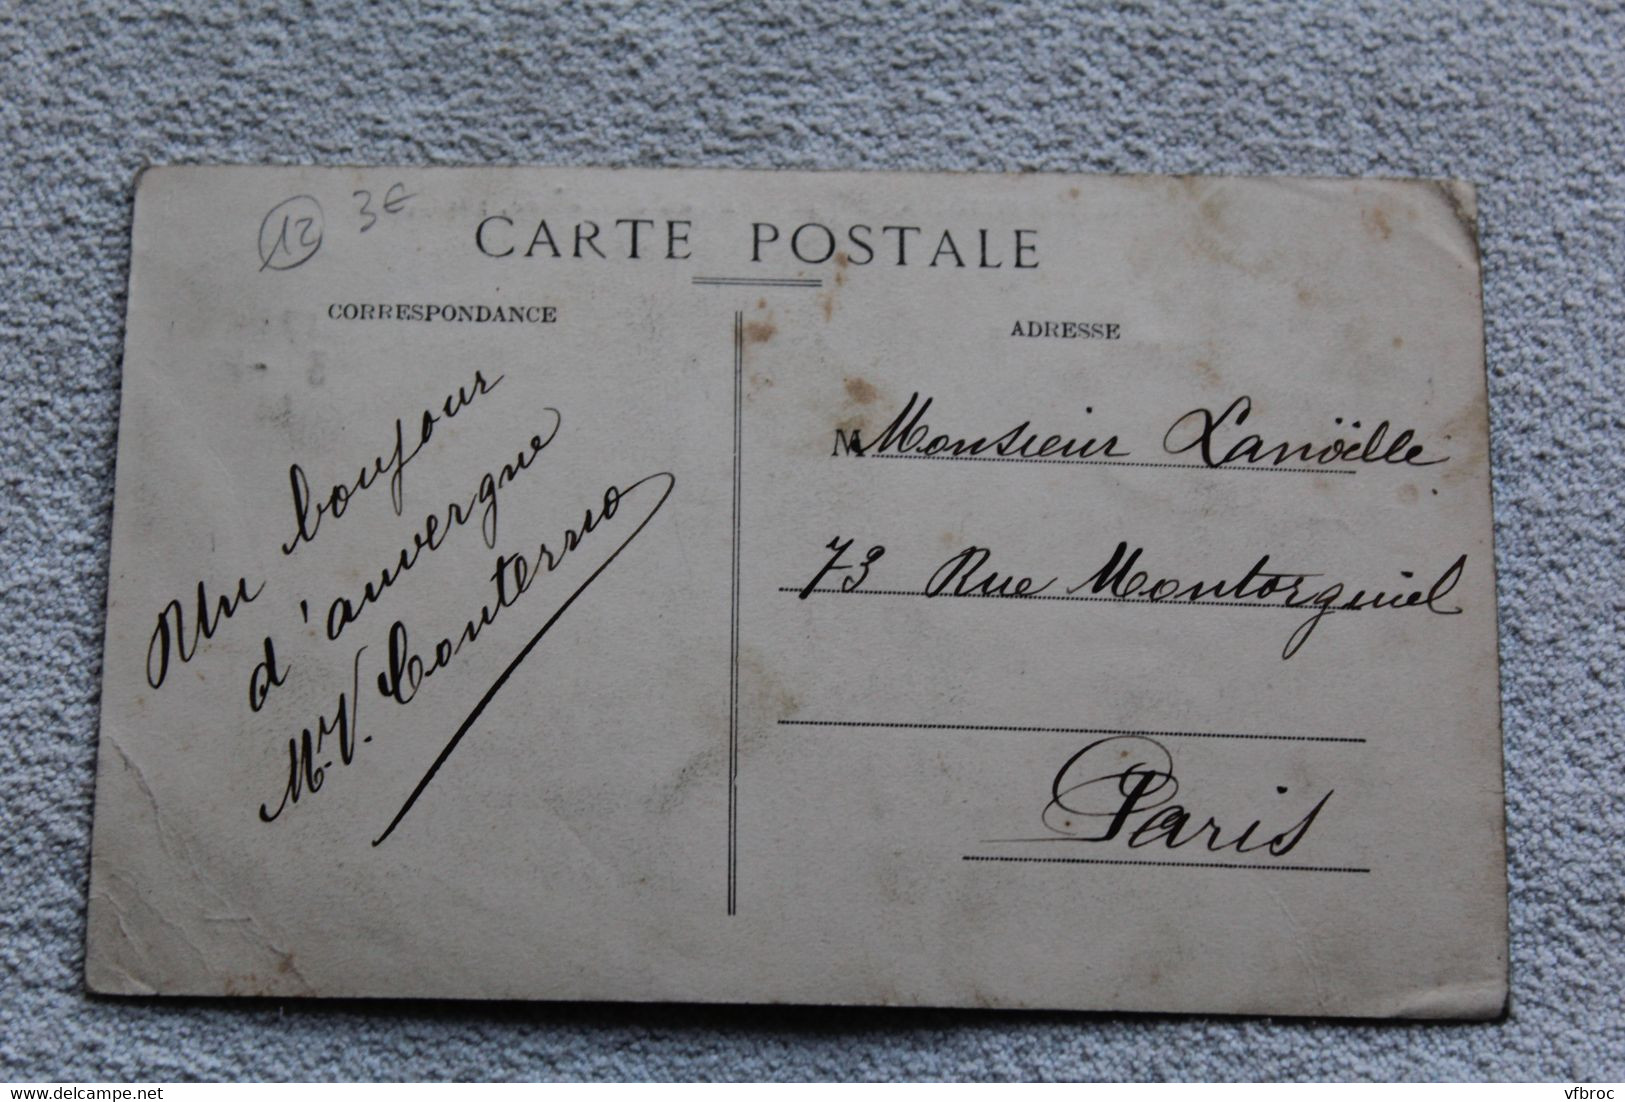 12 3€
CARTE POSTALE
CORRESPONDANCE
Un bonjour
d'auvergne
Mr. V. Conterno
ADRESSE
M Monsieur Lanöelle
73 Rue Montorgueil
Paris
www.delcampe.net
vfbroc